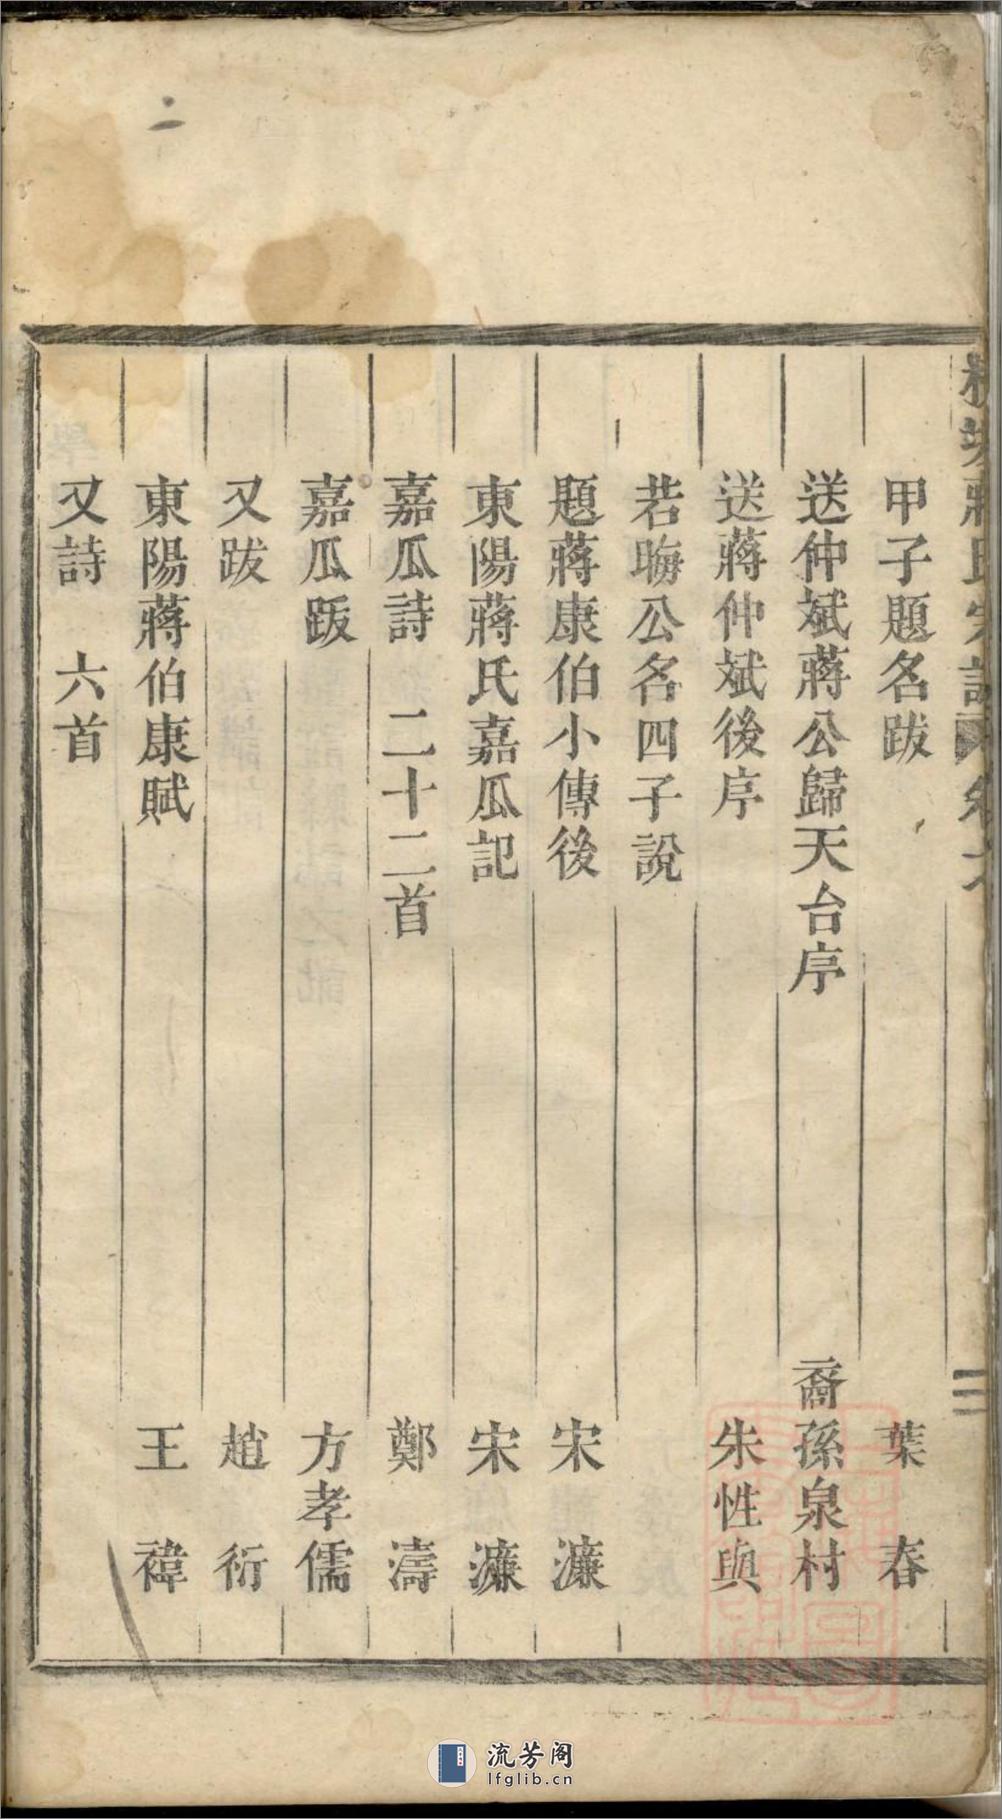 甲子題名跋 葉春
送仲斌蔣公歸天台序 裔孫泉村
送蔣仲斌後序 朱性與
若晦公名四子說
題蔣康伯小傳後 宋濂
東陽蔣氏嘉瓜記 宋濂
嘉瓜詩 二十二首 鄭濤
嘉瓜跋 方孝儒
又跋 趙衍
東陽蔣伯康賦 王褘
又詩 六首
二
流芳阁
lfglib.cn